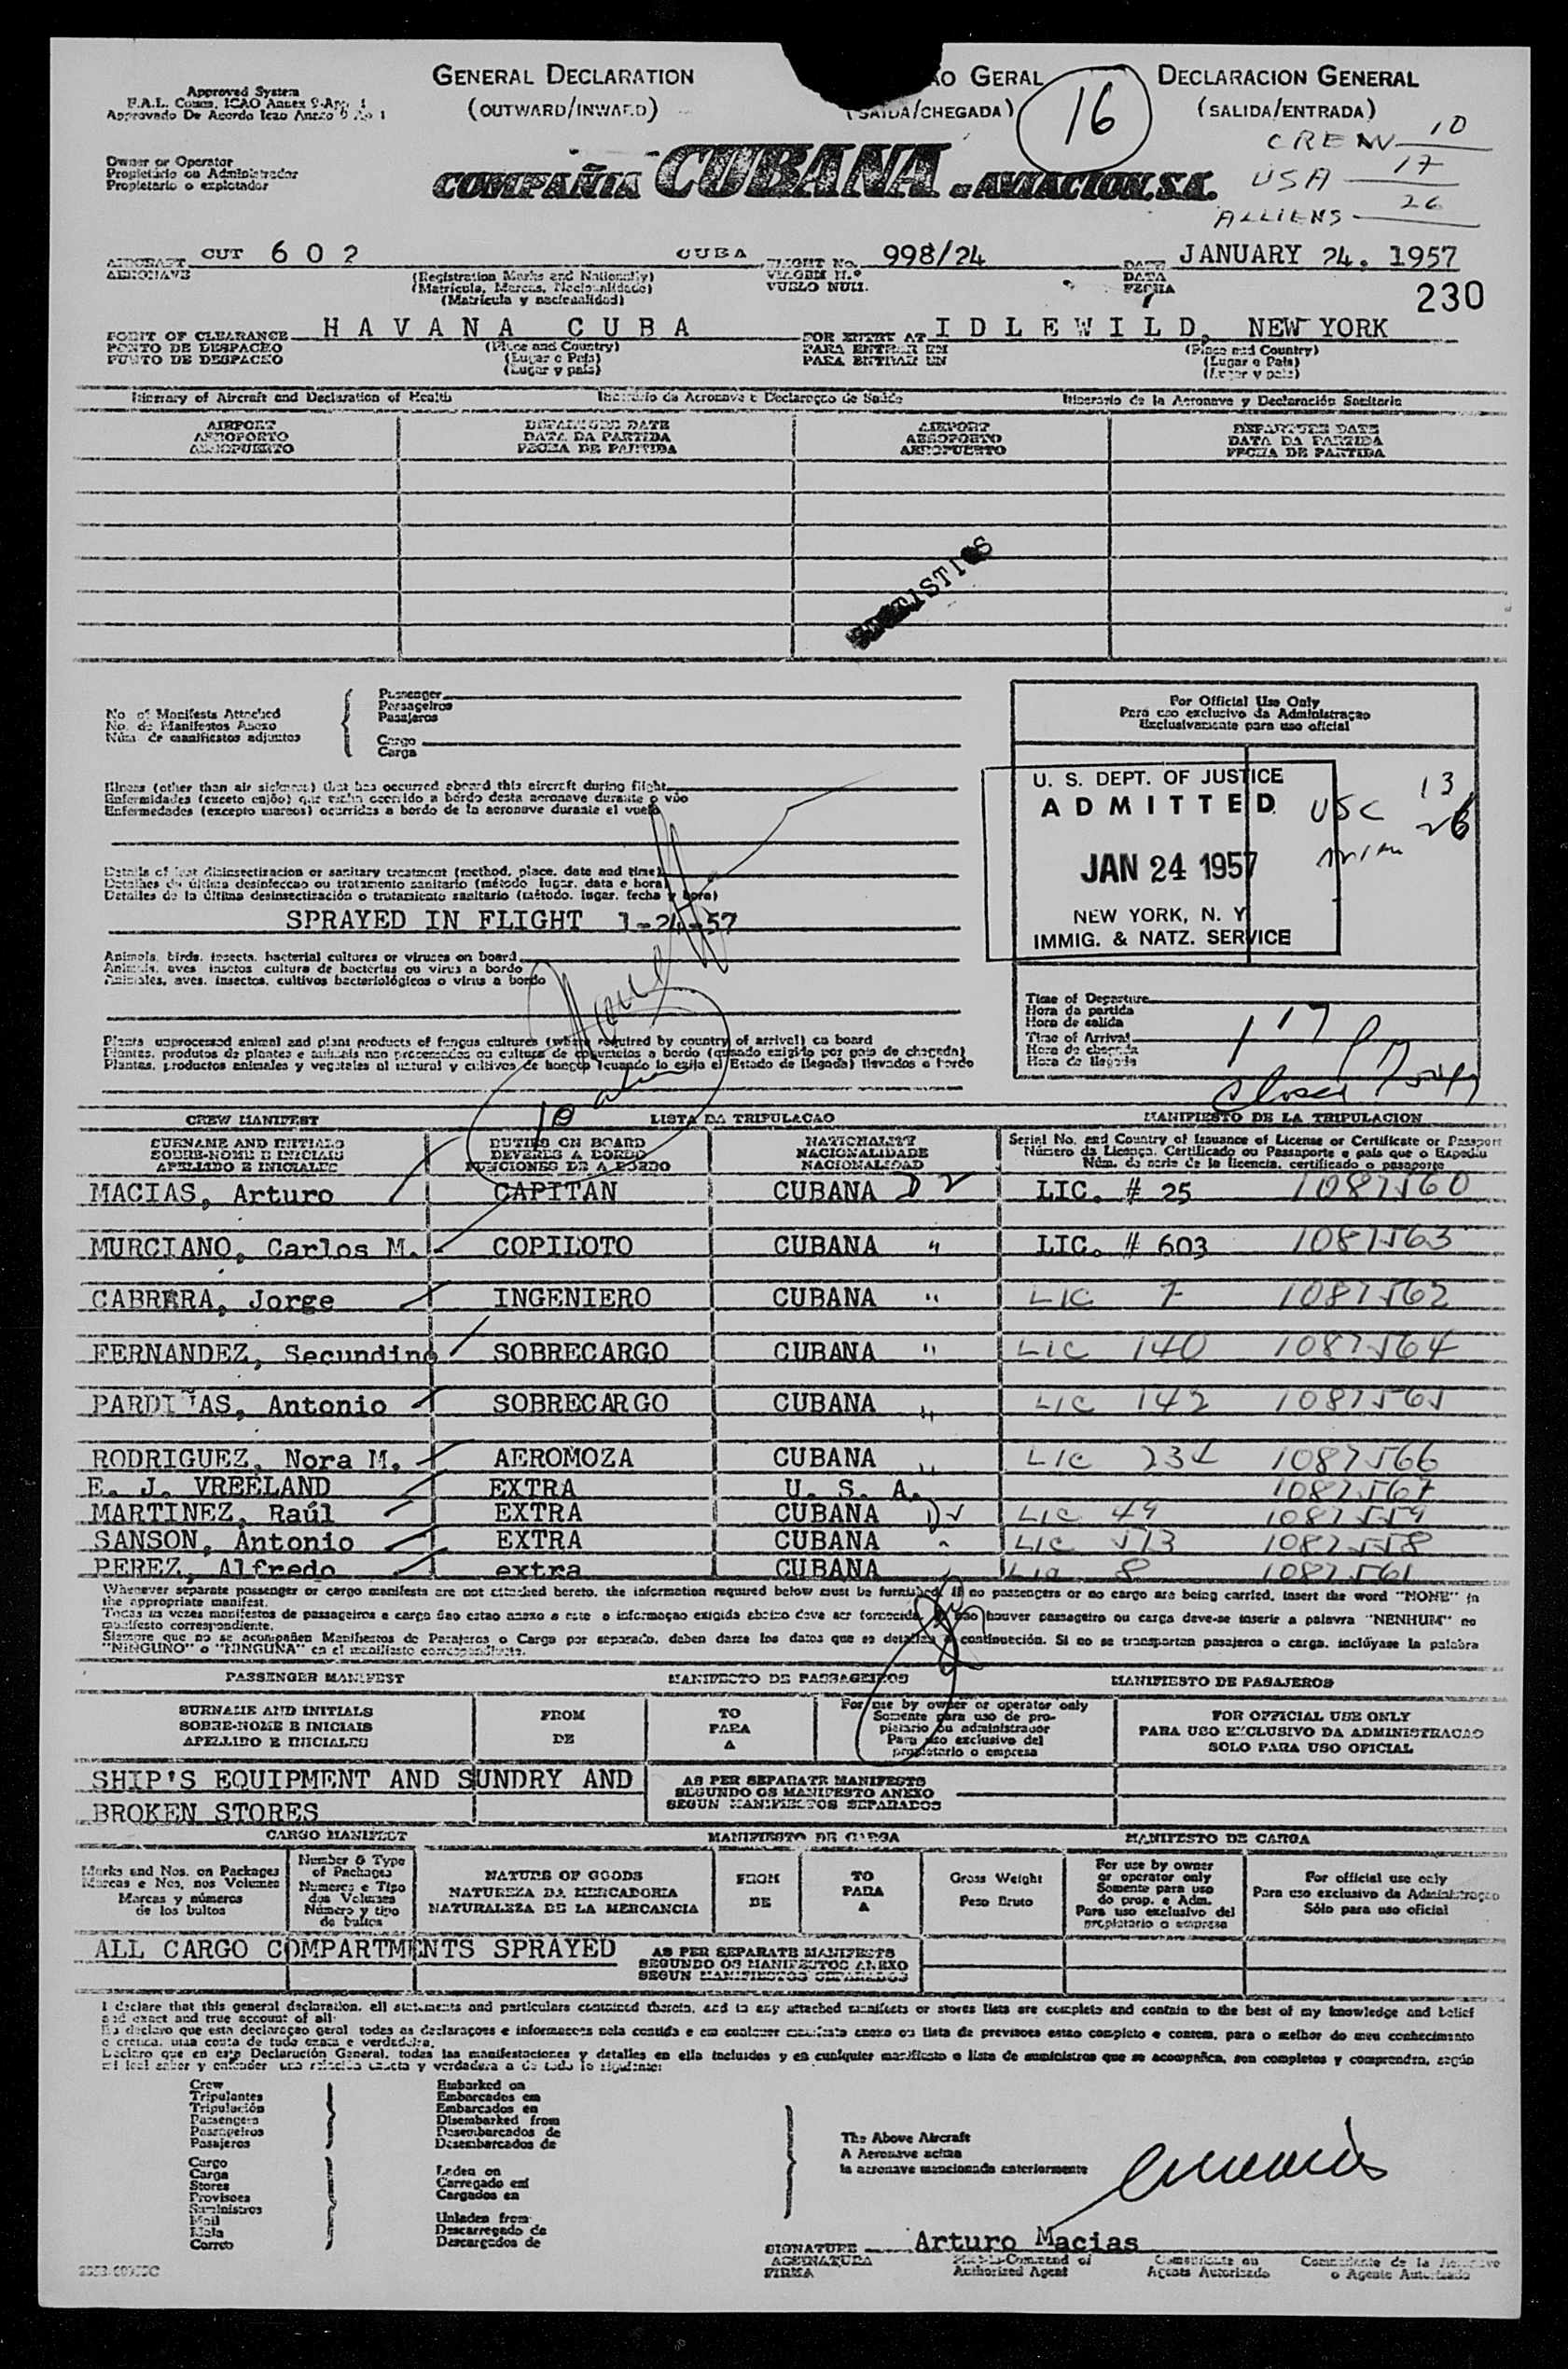 Approved System
F.A.L. Comm. ICAO Annex 9-App. 1
Approvado De Acordo Icao Anexo 9 Ap 1
GENERAL DECLARATION
(OUTWARD/INWARD)
ÃO GERAL
(SAIDA/CHEGADA)
16
DECLARACION GENERAL
(SALIDA/ENTRADA)
CREW 10
USA 17
ALLIENS 26
Owner or Operator
Propietário ou Administrador
Propietario o explotador
COMPAÑIA CUBANA DE AVIACION, S.A.
AIRCRAFT CUT 602 CUBA
AERONAVE
(Registration Marks and Nationality)
(Matricula, Marcas, Nacionalidade)
(Matricula y nacionalidad)
FLIGHT No. 998/24
VIAGEM N.º
VUELO NUM.
DATE JANUARY 24. 1957
DATA
FECHA
230
POINT OF CLEARANCE HAVANA CUBA
PONTO DE DESPACHO
PUNTO DE DESPACHO
(Place and Country)
(Lugar e País)
(Lugar y país)
FOR ENTRY AT IDLEWILD, NEW YORK
PARA ENTRAR EM
PARA ENTRAR EN
(Place and Country)
(Lugar e País)
(Lugar y país)
Itinerary of Aircraft and Declaration of Health
Itinerário da Aeronave e Declaração de Saúde
Itinerario de la Aeronave y Declaración Sanitaria
AIRPORT
AEROPORTO
AEROPUERTO
DEPARTURE DATE
DATA DA PARTIDA
FECHA DE PARTIDA
AIRPORT
AEROPORTO
AEROPUERTO
DEPARTURE DATE
DATA DA PARTIDA
FECHA DE PARTIDA
STATISTICS
No of Manifests Attached
No. de Manifestos Anexo
Núm. de manifiestos adjuntos
Passenger
Passageiros
Pasajeros
Cargo
Carga
For Official Use Only
Para uso exclusivo da Administraçao
Exclusivamente para uso oficial
U. S. DEPT. OF JUSTICE
ADMITTED
JAN 24 1957
NEW YORK, N. Y.
IMMIG. & NATZ. SERVICE
USC 13
26
Illness (other than air sickness) that has occurred aboard this aircraft during flight
Enfermidades (exceto enjôo) que estão ocorrido a bórdo desta aeronave durante o vôo
Enfermedades (excepto mareos) ocurridas a bordo de la aeronave durante el vuelo
Details of last disinsectization or sanitary treatment (method, place, date and time)
Detalhes da última desinfeccao ou tratamento sanitario (método lugar, data e hora)
Detalles de la última desinsectización o tratamiento sanitario (método, lugar, fecha y hora)
SPRAYED IN FLIGHT 1-24-57
Animals, birds, insects, bacterial cultures or viruses on board
Animais, aves insetos cultura de bactérias ou virus a bordo
Animales, aves, insectos, cultivos bacteriológicos o virus a bordo
Plants unprocessed animal and plant products of fungus cultures (where required by country of arrival) on board
Plantas, produtos de plantas e animais nao processados ou cultura de cogumelos a bordo (quando exigido por pais de chegada)
Plantas, productos animales y vegetales al natural y cultivos de hongos (cuando lo exija el Estado de llegada) llevados a bordo
Time of Departure
Hora da partida
Hora de salida
Time of Arrival
Hora de chegada
Hora de llegada
10
CREW MANIFEST
LISTA DA TRIPULACAO
MANIFIESTO DE LA TRIPULACION
SURNAME AND INITIALS
SOBRE-NOME E INICIAIS
APELLIDO E INICIALES
DUTIES ON BOARD
DEVERES A BORDO
FUNCIONES DE A BORDO
NATIONALITY
NACIONALIDADE
NACIONALIDAD
Serial No. and Country of Issuance of License or Certificate or Passport
Número da Licença, Certificado ou Passaporte e país que o Expediu
Núm. de serie de la licencia, certificado o pasaporte
MACIAS, Arturo CAPITAN CUBANA D2 LIC. # 25 1087560
MURCIANO, Carlos M. COPILOTO CUBANA " LIC. # 603 1087563
CABRERA, Jorge INGENIERO CUBANA " LIC 7 1087562
FERNANDEZ, Secundino SOBRECARGO CUBANA " LIC 140 1087564
PARDIÑAS, Antonio SOBRECARGO CUBANA " LIC 142 1087565
RODRIGUEZ, Nora M. AEROMOZA CUBANA " LIC 1087566
E. J. VREELAND EXTRA U. S. A. 1087567
MARTINEZ, Raúl EXTRA CUBANA D2 LIC 49 1087559
SANSON, Antonio EXTRA CUBANA " LIC 573 1087558
PEREZ, Alfredo extra CUBANA LIC 8 1087561
Whenever separate passenger or cargo manifests are not attached hereto, the information required below must be furnished. If no passengers or no cargo are being carried, insert the word "NONE" in
the appropriate manifest.
Todas as vezes manifestos de passageiros e carga nao estao anexo a este o informaçao exigida abaixo deve ser fornecida. Se não houver passageiro ou carga deve-se inserir a palavra "NENHUM" no
manifesto correspondiente.
Siempre que no se acompañen Manifiestos de Pasajeros o Carga por separado, deben darse los datos que se detallan a continuación. Si no se transportan pasajeros o carga, inclúyase la palabra
"NINGUNO" o "NINGUNA" en el manifiesto correspondiente.
PASSENGER MANIFEST
MANIFESTO DE PASSAGEIROS
MANIFIESTO DE PASAJEROS
SURNAME AND INITIALS
SOBRE-NOME E INICIAIS
APELLIDO E INICIALES
FROM
DE
TO
PARA
A
For use by owner or operator only
Somente para uso de pro-
pietario ou administrador
Para uso exclusivo del
propietario o empresa
FOR OFFICIAL USE ONLY
PARA USO EXCLUSIVO DA ADMINISTRACAO
SOLO PARA USO OFICIAL
SHIP'S EQUIPMENT AND SUNDRY AND
BROKEN STORES
AS PER SEPARATE MANIFESTS
SEGUNDO OS MANIFESTO ANEXO
SEGUN MANIFIESTOS SEPARADOS
CARGO MANIFEST
MANIFIESTO DE CARGA
MANIFESTO DE CARGA
Marks and Nos. on Packages
Marcas e Nos. nos Volumes
Marcas y números
de los bultos
Number & Type
of Packages
Numeros e Tipo
dos Volumes
Número y tipo
de bultos
NATURE OF GOODS
NATUREZA DA MERCADORIA
NATURALEZA DE LA MERCANCIA
FROM
DE
TO
PARA
A
Gross Weight
Peso Bruto
For use by owner
or operator only
Somente para uso
do prop. e Adm.
Para uso exclusivo del
propietario o empresa
For official use only
Para uso exclusivo da Administraçao
Sólo para uso oficial
ALL CARGO COMPARTMENTS SPRAYED
AS PER SEPARATE MANIFESTS
SEGUNDO OS MANIFESTOS ANEXO
SEGUN MANIFIESTOS SEPARADOS
I declare that this general declaration, all statements and particulars contained therein, and in any attached manifests or stores lists are complete and contain to the best of my knowledge and belief
and exact and true account of all:
Eu declaro que esta declaraçao geral todas as declaraçoes e informacoes nela contida e em qualquer manifesto anexo ou lista de previsoes estao completo e contem, para o melhor do meu conhecimento
e crença, uma conta de tudo exata e verdadeira.
Declaro que en este Declarución General, todas las manifestaciones y detalles en ella incluídos y en cualquier manifiesto o lista de suministros que se acompañen, son completos y comprenden, según
mi leal saber y entender una relación exacta y verdadera a de todo lo siguiente:
Crew
Tripulantes
Tripulación
Passengers
Passageiros
Pasajeros
Cargo
Carga
Stores
Provisoes
Suministros
Mail
Mala
Correo
Embarked on
Embarcados em
Embarcados en
Disembarked from
Desembarcados de
Desembarcados de
Laden on
Carregado em
Cargados en
Unladen from
Descarregado de
Descargados de
The Above Aircraft
A Aeronave acima
la aeronave mencionada anteriormente
SIGNATURE Arturo Macias
ASSINATURA
FIRMA
Pilot-in-Command of
Authorized Agent
Comandante ou
Agente Autorizado
Comandante de la Aeronave
o Agente Autorizado